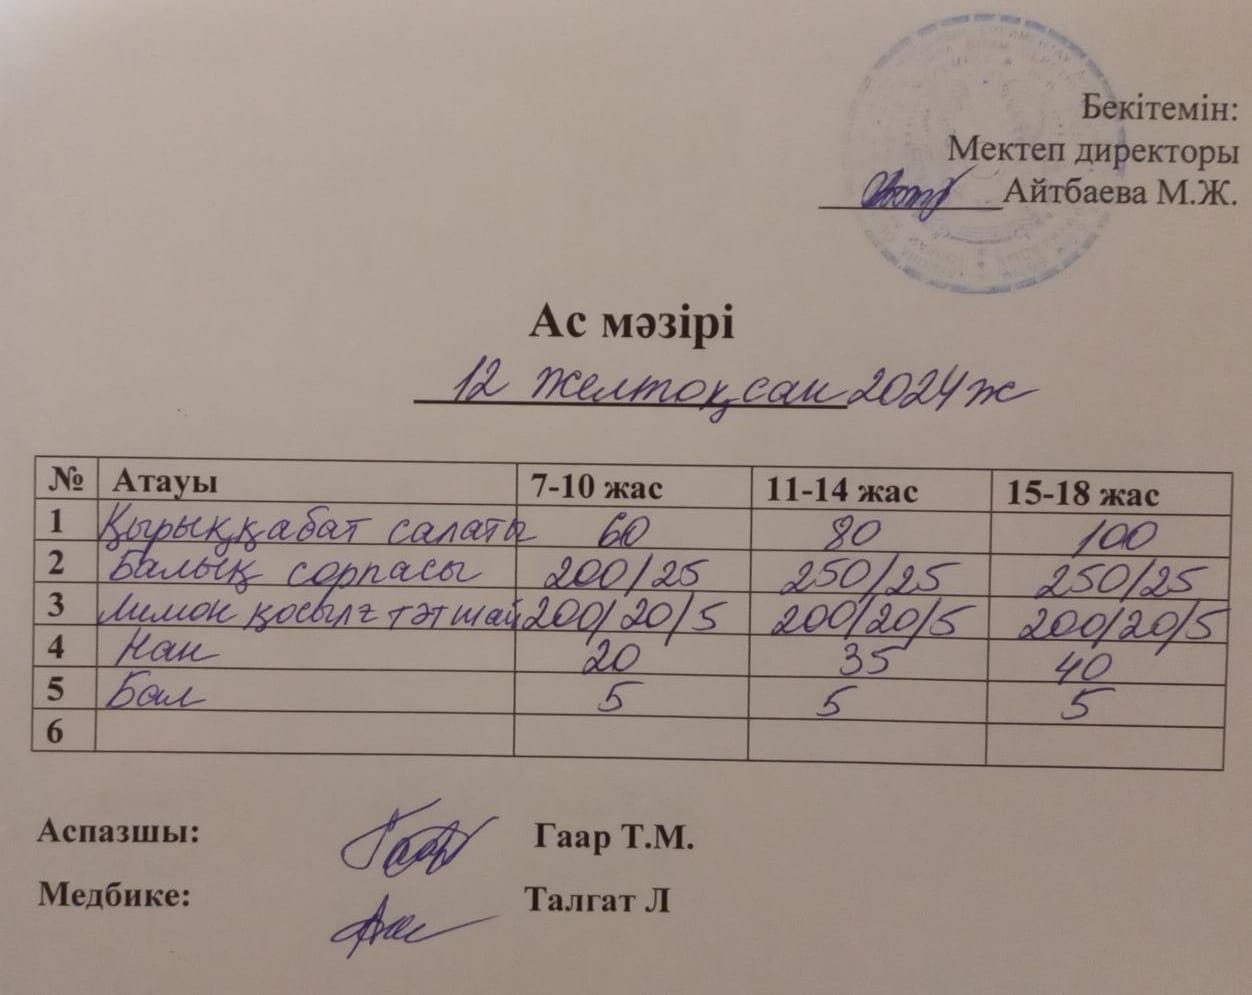 Бекітемін:
Мектеп директоры
Айтбаева М.Ж.
Ас мәзірі
12 желтоқсан 2024 ж
№ Атауы 7-10 жас 11-14 жас 15-18 жас
1 Қырыққабат салаты 60 80 100
2 Балық сорпасы 200/25 250/25 250/25
3 Лимон қосылғ тәт шай 200/20/5 200/20/5 200/20/5
4 Нан 20 35 40
5 Бал 5 5 5
6
Аспазшы: Гаар Т.М.
Медбике: Талгат Л